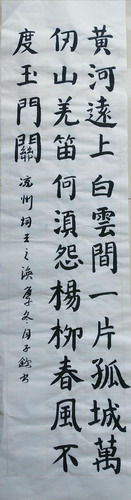 黃河遠上白雲間一片孤城萬
仞山羌笛何須怨楊柳春風不
度玉門關
涼州詞王之渙庚子冬月子